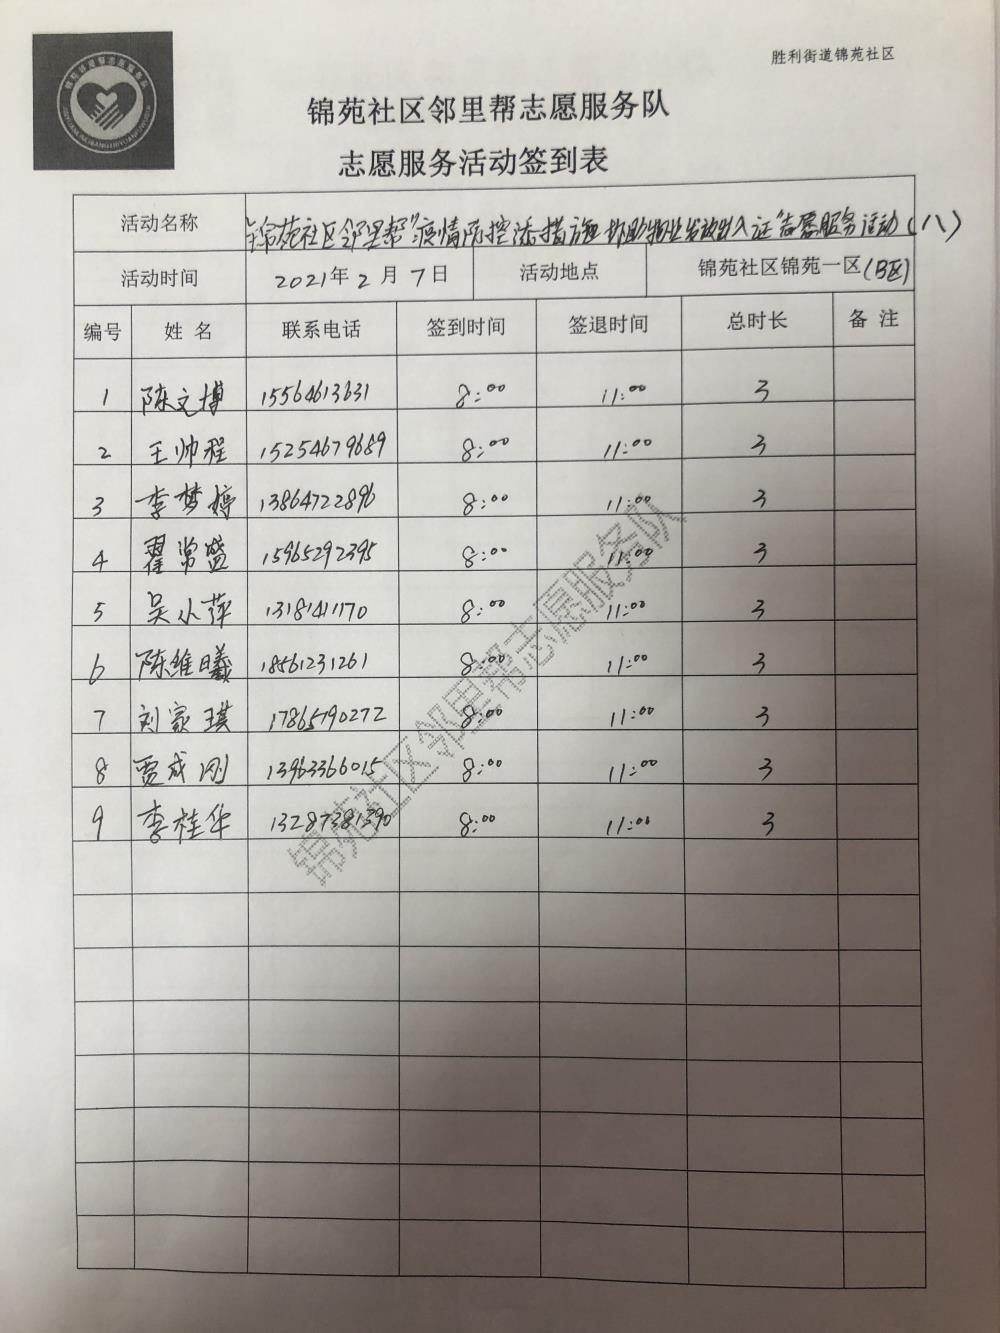 胜利街道锦苑社区
锦苑社区邻里帮志愿服务队
志愿服务活动签到表
活动名称 锦苑社区邻里帮"疫情防控添措施 协助物业发放出入证"志愿服务活动(八)
活动时间 2021年2月7日 活动地点 锦苑社区锦苑一区(B区)
编号 姓名 联系电话 签到时间 签退时间 总时长 备注
1 陈文博 15564613631 8:00 11:00 3
2 王帅程 15254679689 8:00 11:00 3
3 李梦婷 13864722896 8:00 11:00 3
4 翟常盛 15965292395 8:00 11:00 3
5 吴小萍 13181411170 8:00 11:00 3
6 陈维曦 18561231261 8:00 11:00 3
7 刘家琪 17865790272 8:00 11:00 3
8 贾成刚 13963366015 8:00 11:00 3
9 李桂华 13287381390 8:00 11:00 3
锦苑社区邻里帮志愿服务队